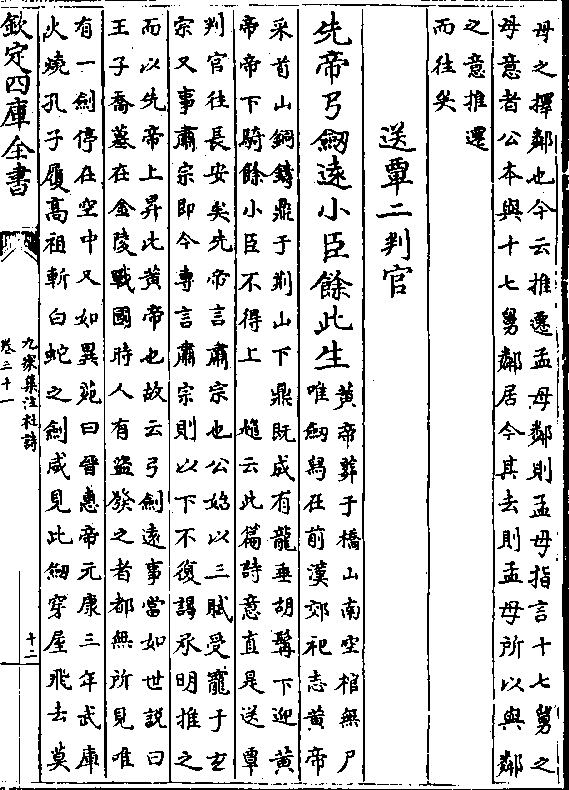 母之擇鄰也今云推遷孟母鄰則孟母指言十七舅之
母意者公本與十七舅鄰居今其去則孟母所以與鄰
之意推遷
而往矣
送覃二判官
先帝弓劒遠小臣餘此生
黃帝葬于橋山南空棺無尸
唯劒舄在前漢郊祀志黃帝
采首山銅鑄鼎于荆山下鼎既成有龍垂胡髯下迎黃
帝帝下騎餘小臣不得上 趙云此篇詩意直是送覃
判官往長安矣先帝言肅宗也公始以三賦受寵于玄
宗又事肅宗即今專言肅宗則以下不復謁承明推之
而以先帝上昇比黃帝也故云弓劍遠事當如世說曰
王子喬墓在金陵戰國時人有盜發之者都無所見唯
有一劍停在空中又如異苑曰晉惠帝元康三年武庫
火燒孔子履高祖斬白蛇之劍咸見此劒穿屋飛去莫
欽定四庫全書
九家集注杜詩
卷三十一
十二